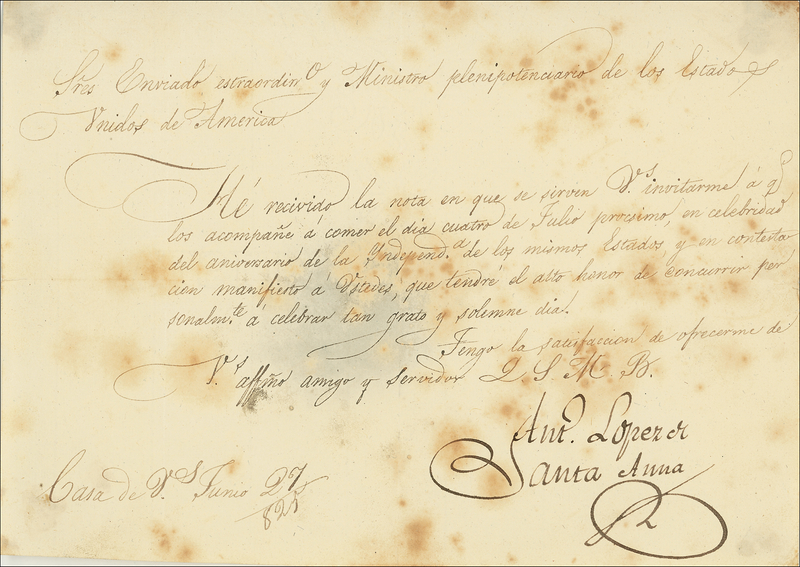 Sres Enviado estraordin.o y Ministro plenipotenciario de los Estados
Unidos de America
Hé recivido la nota en que se sirven V.s invitarme á q.e
los acompañe á comer el dia cuatro de Julio procsimo, en celebridad
del aniversario de la Independ.a de los mismos Estados y en contesta
cion manifiesto á Ustedes, que tendré el alto honor de concurrir per
sonalm.te á celebrar tan grato y solemne dia.
Tengo la satisfaccion de ofrecerme de
V.s affmo amigo y servidor Q S M B.
Ant.o Lopez de
Santa Anna
Casa de V.s Junio 27
825